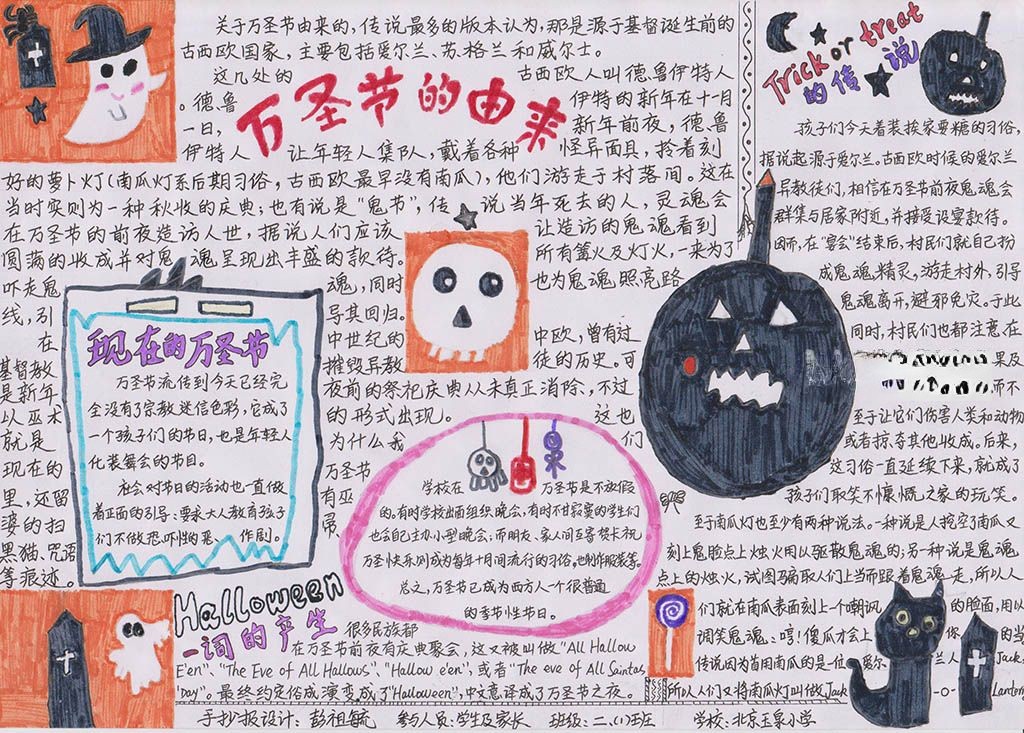 关于万圣节由来的，传说最多的版本认为，那是源于基督诞生前的
古西欧国家，主要包括爱尔兰、苏格兰和威尔士。
这几处的 古西欧人叫德鲁伊特人
。德鲁 伊特的新年在十一月
一日， 新年前夜，德鲁
万圣节的由来
伊特人 让年轻人集队，戴着各种 怪异面具，拎着刻
好的萝卜灯（南瓜灯系后期习俗，古西欧最早没有南瓜），他们游走于村落间。这在
当时实则为一种秋收的庆典；也有说是“鬼节”，传 说当年死去的人，灵魂会
在万圣节的前夜造访人世，据说人们应该 让造访的鬼魂看到
圆满的收成并对鬼 魂呈现出丰盛的款待。 所有篝火及灯火，一来为了
吓走鬼 魂，同时 也为鬼魂照亮路
线，引 导其回归。
在 中世纪的 中欧，曾有过
基督教 摧毁异教 徒的历史。可
是新年 夜前的祭祀庆典从未真正消除，不过
以巫术 的形式出现。 这也
就是 为什么我 们
现在的 万圣节
里，还留 有巫
婆的扫 帚、
黑猫、咒语
等痕迹。
现在的万圣节
万圣节流传到今天已经完
全没有了宗教迷信色彩，它成了
一个孩子们的节日，也是年轻人
化装舞会的节目。
社会对节日的活动也一直做
着正面的引导：要求大人教育孩子
们不做恐吓性的恶、作剧。
学校在 万圣节是不放假
的。有时学校出面组织晚会，有时不甘寂寞的学生们
也会自己主办小型晚会；而朋友、家人间互寄贺卡祝
万圣快乐则成为每年十月间流行的习俗，也制作服装等。
总之，万圣节已成为西方人一个很普通
的季节性节日。
Trick or treat
的传说
孩子们今天着装挨家要糖的习俗，
据说起源于爱尔兰。古西欧时候的爱尔兰
异教徒们，相信在万圣节前夜鬼魂会
群集与居家附近，并接受设宴款待。
因而，在“宴会”结束后，村民们就自己扮
成鬼魂精灵，游走村外，引导
鬼魂离开，避邪免灾。于此
同时，村民们也都注意在
果及
而不
至于让它们伤害人类和动物
或者掠夺其他收成。后来，
这习俗一直延续下来，就成了
孩子们取笑不慷慨之家的玩笑。
至于南瓜灯也至少有两种说法。一种说是人挖空了南瓜又
刻上鬼脸点上烛火用以驱散鬼魂的；另一种说是鬼魂
点上的烛火，试图骗取人们上当而跟着鬼魂走，所以人
们就在南瓜表面刻上一个嘲讽 的脸面，用以
调笑鬼魂：哼！傻瓜才会上 你 的当
传说因为首用南瓜的是一位 爱尔 兰人 Jack
所以人们又将南瓜灯叫做Jack -o- Lantern
Halloween
一词的产生
很多民族都
在万圣节前夜有庆典聚会，这又被叫做“All Hallow
E'en”、“The Eve of All Hallows”、“Hallow e'en”，或者“The eve of All Saintas'
Day”。最终约定俗成演变成了“Halloween”，中文意译成了万圣节之夜。
手抄报设计：彭祖毓 参与人员：学生及家长 班级：二、（1）班 学校：北京玉泉小学